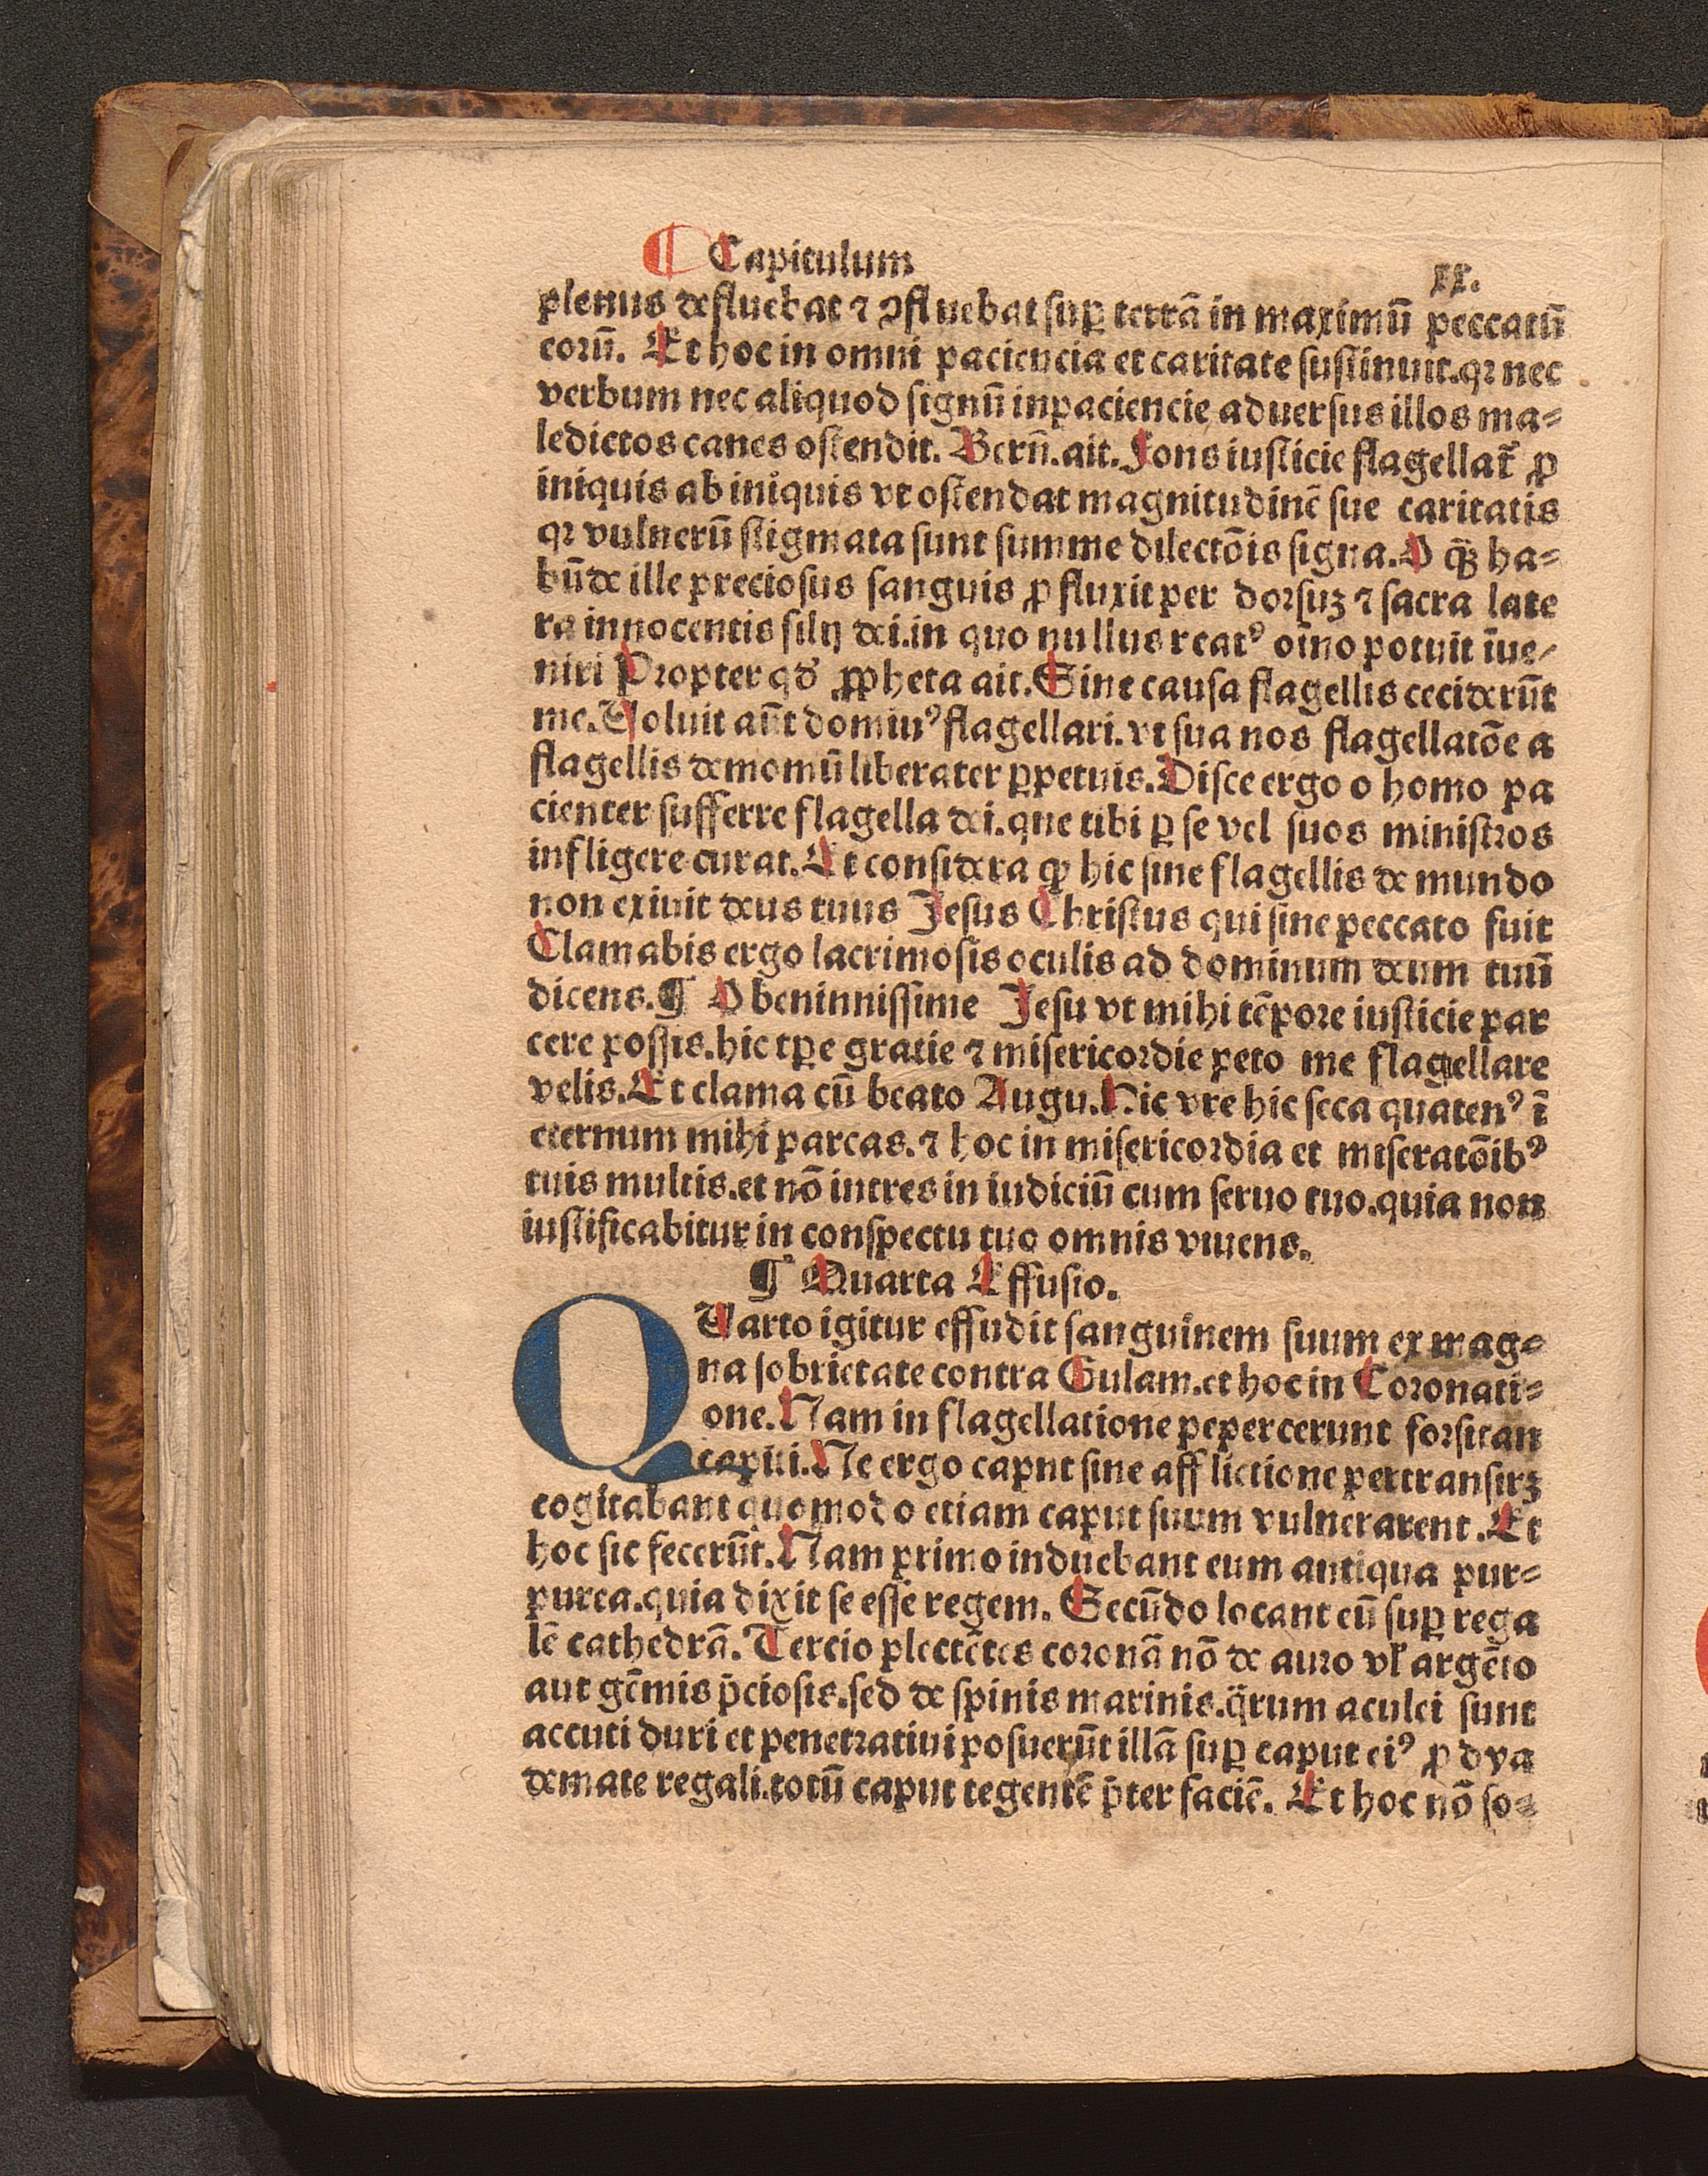 ¶ Capitulum xx.
plenus defluebat ⁊ ꝯfluebat suꝑ terrā in maximū peccatū
eorū. Et hoc in omni paciencia et caritate sustinuit. qꝛ nec
verbum nec aliquod signū inpaciencie aduersus illos ma⸗
ledictos canes ostendit. Bern̄. ait. Fons iusticie flagellat᷑ ꝓ
iniquis ab iniquis vt ostendat magnitudinē sue caritatis
qꝛ vulnerū stigmata sunt summe dilectōis signa. O qꝫ̄ ha⸗
būde ille preciosus sanguis ꝓfluxit per dorsuꝫ ⁊ sacra late
ra innocentis filij dei. in quo nullus reatꝰ oīno potuit īue⸗
niri Propter qd̓ ꝓpheta ait. Sine causa flagellis ceciderūt
me. Voluit aūt dominꝰ flagellari. vt sua nos flagellatōe a
flagellis demomū liberater ꝑpetuis. Disce ergo o homo pa
cienter sufferre flagella dei. que tibi ꝑ se vel suos ministros
infligere curat. Et considera ꝙ hic sine flagellis de mundo
non exiuit deus tuus Jesus Christus qui sine peccato fuit
Clamabis ergo lacrimosis oculis ad dominum deum tuū
dicens. ¶ O beninnissime Jesu vt mihi tēpore iusticie par
cere possis. hic tꝑe gratie ⁊ misericordie peto me flagellare
velis. Et clama cū beato Augu. Hic vre hic seca quatenꝰ ī
eternum mihi parcas. ⁊ hoc in misericordia et miseratōibꝰ
tuis multis. et nō intres in iudiciū cum seruo tuo. quia non
iustificabitur in conspectu tuo omnis viuens.
¶ Quarta Effusio.
QUarto igitur effudit sanguinem suum ex mag⸗
na sobrietate contra Gulam. et hoc in Coronati⸗
one. Nam in flagellatione pepercerunt forsitan
capiti. Ne ergo caput sine afflictione pertransirꝫ
cogitabant quomodo etiam caput suum vulnerarent. Et
hoc sic fecerūt. Nam primo induebant eum antiqua pur⸗
purea. quia dixit se esse regem. Secūdo locant eū suꝑ rega
lē cathedrā. Tercio plectētes coronā nō de auro vł argēto
aut gēmis p̄ciosis. sed de spinis marinis. q̄rum aculei sunt
accuti duri et penetratiui posuerūt illā suꝑ caput eiꝰ ꝓ dya
demate regali. totū caput tegentē p̄ter faciē. Et hoc nō so⸗